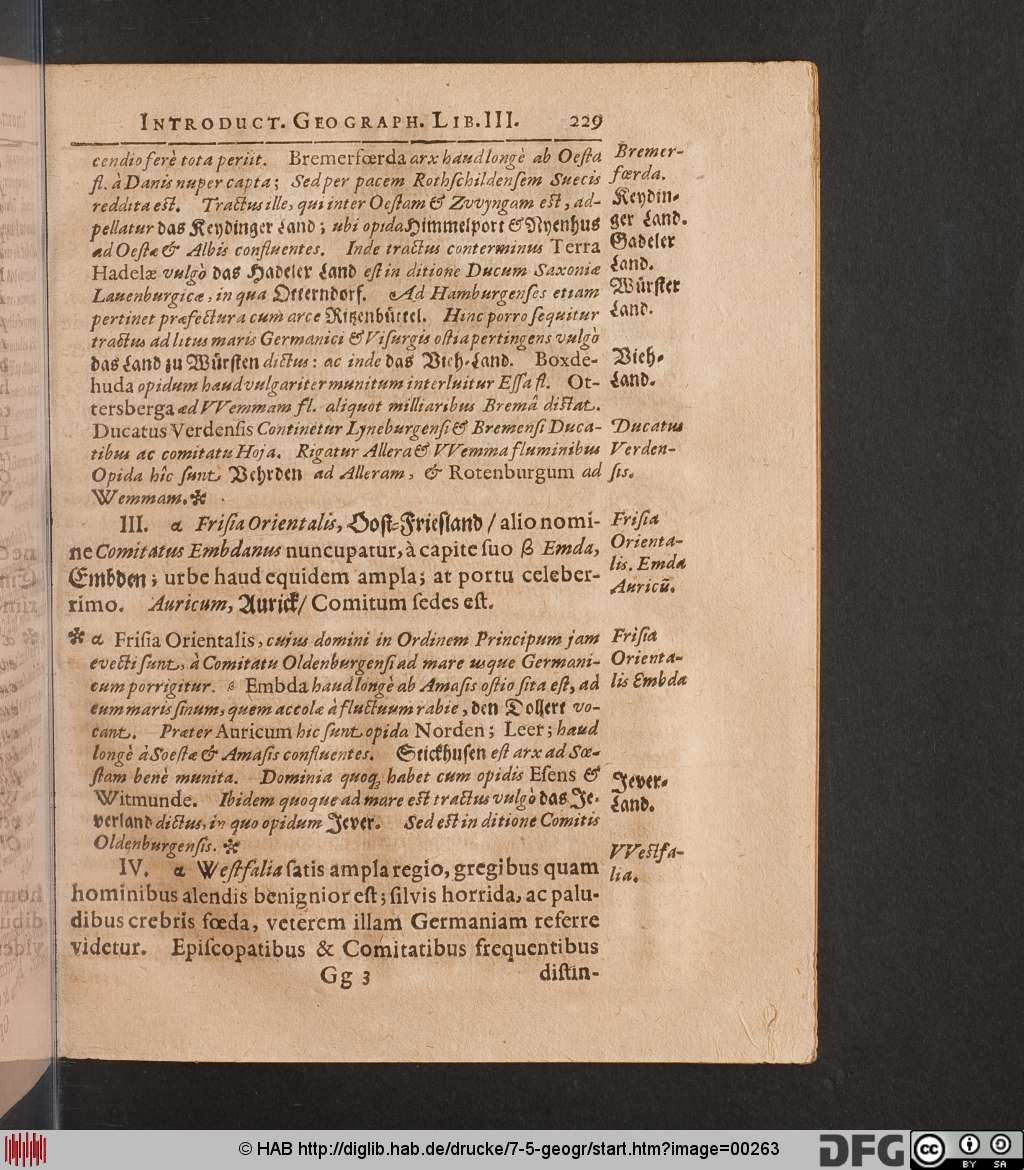 INTRODUCT. GEOGRAPH. LIB. III. 229
cendio ferè tota periit. Bremerfœrda arx haud longè ab Oeſta
fl. à Danis nuper capta; Sed per pacem Rothſchildenſem Suecis
reddita eſt. Tractus ille, qui inter Oeſtam & Zvvyngam eſt, ad-
pellatur das Keydinger Land; ubi opida Himmelport & Nyenhus
ad Oeſtæ & Albis confluentes. Inde tractus conterminus Terra
Hadelæ vulgò das Hadeler Land eſt in ditione Ducum Saxoniæ
Lauenburgicæ, in qua Otterndorf. Ad Hamburgenſes etiam
pertinet præfectura cum arce Ritzenbüttel. Hinc porro ſequitur
tractus ad litus maris Germanici & Viſurgis oſtia pertingens vulgò
das Land zu Würſten dictus: ac inde das Vieh-Land. Boxde-
huda opidum haud vulgariter munitum interluitur Eſſa fl. Ot-
tersberga ad VVemmam fl. aliquot milliaribus Bremâ diſtat.
Ducatus Verdenſis Continetur Lyneburgenſi & Bremenſi Duca-
tibus ac comitatu Hoja. Rigatur Allera & VVemma fluminibus
Opida hîc ſunt Vehrden ad Alleram, & Rotenburgum ad
Wemmam.*
III. a Friſia Orientalis, Ooſt-Frießland / alio nomi-
ne Comitatus Embdanus nuncupatur, à capite ſuo ß Emda,
Embden; urbe haud equidem ampla; at portu celeber-
rimo. Auricum, Aurick / Comitum ſedes eſt.
* a Friſia Orientalis, cujus domini in Ordinem Principum jam
evecti ſunt, à Comitatu Oldenburgenſi ad mare usque Germani-
cum porrigitur. ß Embda haud longè ab Amaſis oſtio ſita eſt, ad
eum maris ſinum, quem accolæ à fluctuum rabie, den Dollert vo-
cant. Præter Auricum hic ſunt opida Norden; Leer; haud
longè à Soeſtæ & Amaſis confluentes. Stickhuſen eſt arx ad Sœ-
ſtam benè munita. Dominia quoq; habet cum opidis Eſens &
Witmunde. Ibidem quoque ad mare eſt tractus vulgò das Je-
verland dictus, in quo opidum Jever. Sed eſt in ditione Comitis
Oldenburgenſis. *
IV. a Weſtfalia ſatis ampla regio, gregibus quam
hominibus alendis benignior eſt; ſilvis horrida, ac palu-
dibus crebris fœda, veterem illam Germaniam referre
videtur. Epiſcopatibus & Comitatibus frequentibus
Gg 3 diſtin-
Bremer-
fœrda.
Keydin-
ger Land.
Gadeler
Land.
Würſter
Land.
Vieh-
Land.
Ducatus
Verden-
ſis.
Friſia
Orienta-
lis. Emda
Auricũ.
Friſia
Orienta-
lis Embda
Jever-
Land.
VVeſtfa-
lia.
© HAB http://diglib.hab.de/drucke/7-5-geogr/start.htm?image=00263
DFG
cc
BY SA